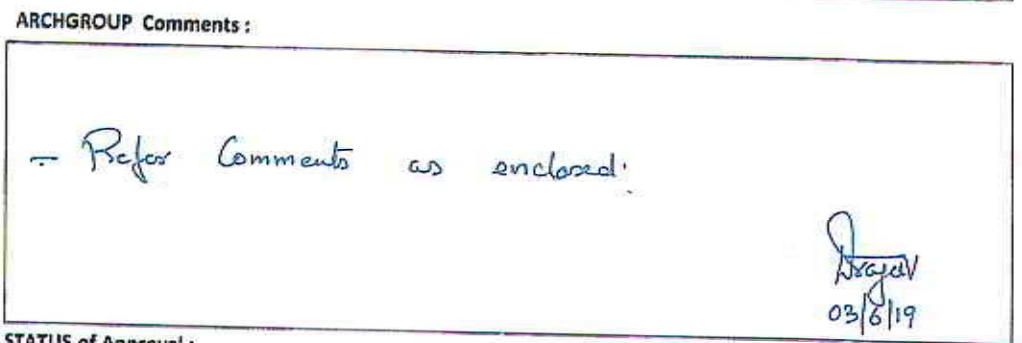 ARCHGROUP Comments :
- Refer Comments as enclosed.
03/6/19
STATUS of Approval :